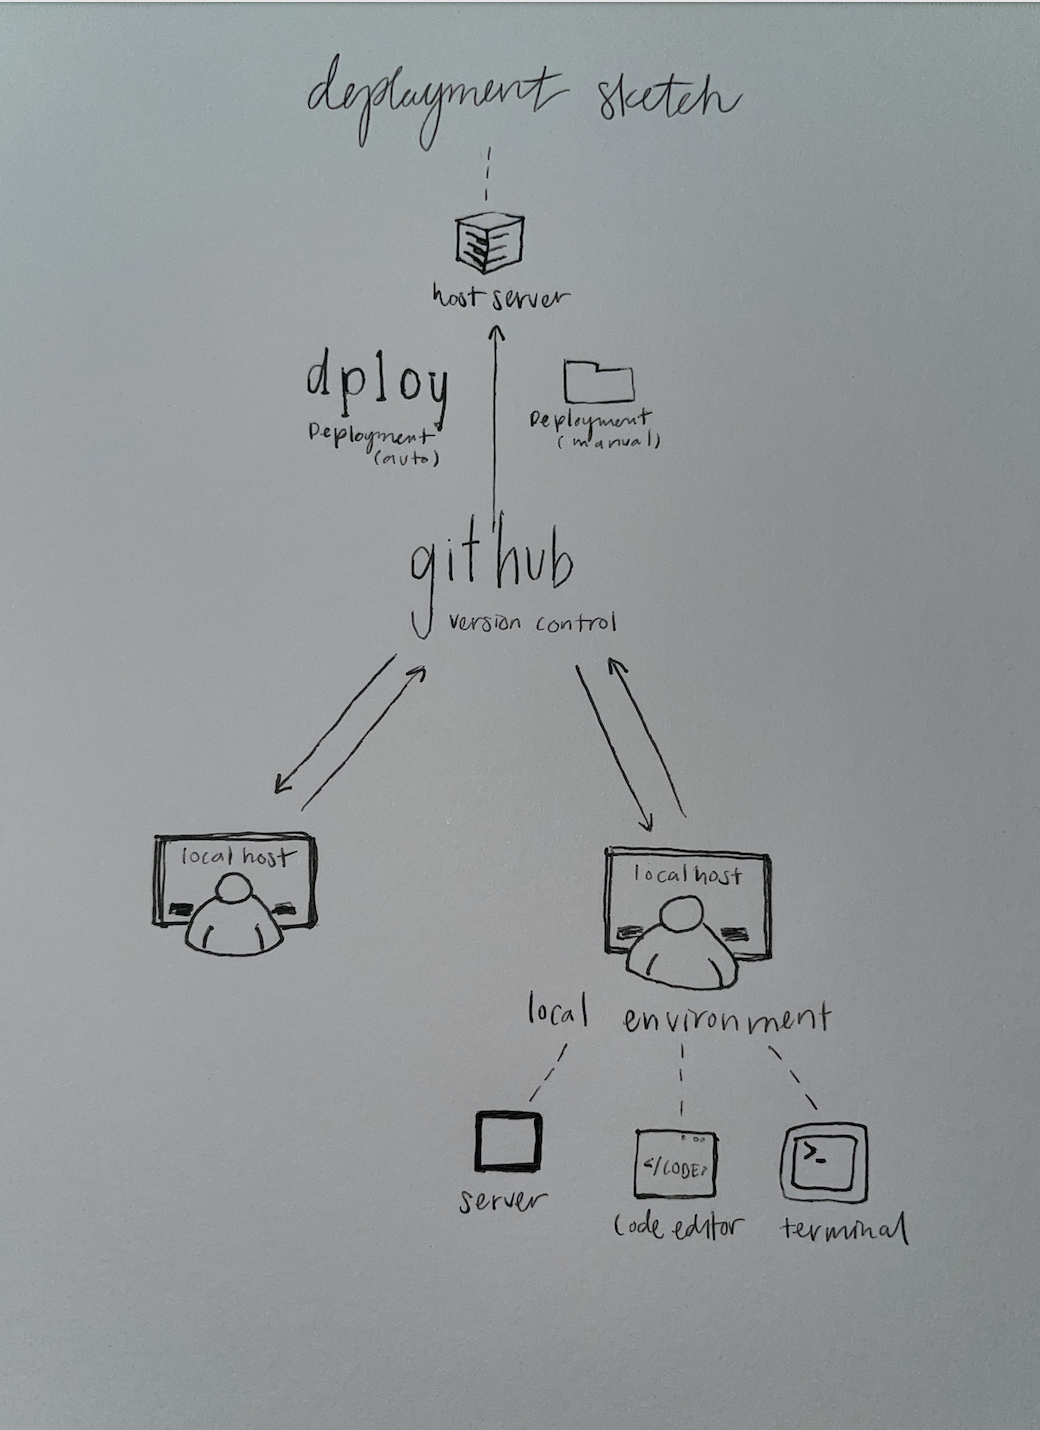 deployment sketch
host server
dploy
Deployment
(auto)
Deployment
(manual)
github
version control
localhost
localhost
local environment
</CODE>
>_
server
code editor
terminal